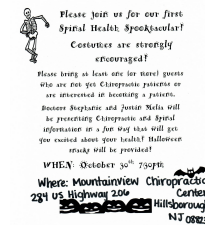 Please join us for our first
Spinal Health Spooktacular!
Costumes are strongly
encouraged!
Please bring at least one (or more) guests
who are not yet Chiropractic patients or
are interested in becoming a patient.
Doctors Stephanie and Justin Melia will
be presenting Chiropractic and Spinal
information in a fun way that will get
you excited about your health! Halloween
snacks will be provided!
WHEN: October 30th 730pm
Where: Mountainview Chiropractic
Center
284 US Highway 206
Hillsborough
NJ 0882